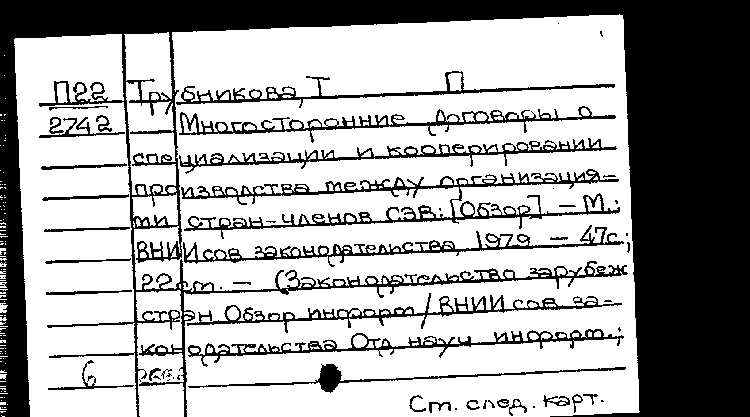 П22 Трубникова, Т П
2742 Многосторонние договоры о
специализации и кооперировании
производства между организация-
ми стран-членов СЭВ: [Обзор] – М.;
ВНИИ сов законодательства, 1979 – 47с.;
22 см. – (Законодательство зарубеж
стран Обзор информ / ВНИИ сов за-
конодательства Отд науч информ.;
6
См. след. карт.